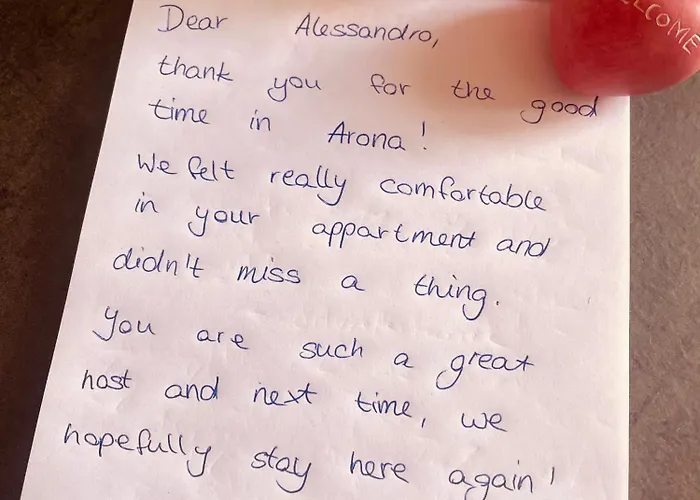 WELCOME
Dear Alessandro,
thank you for the good
time in Arona!
We felt really comfortable
in your appartment and
didn't miss a thing.
You are such a great
host and next time, we
hopefully stay here again!